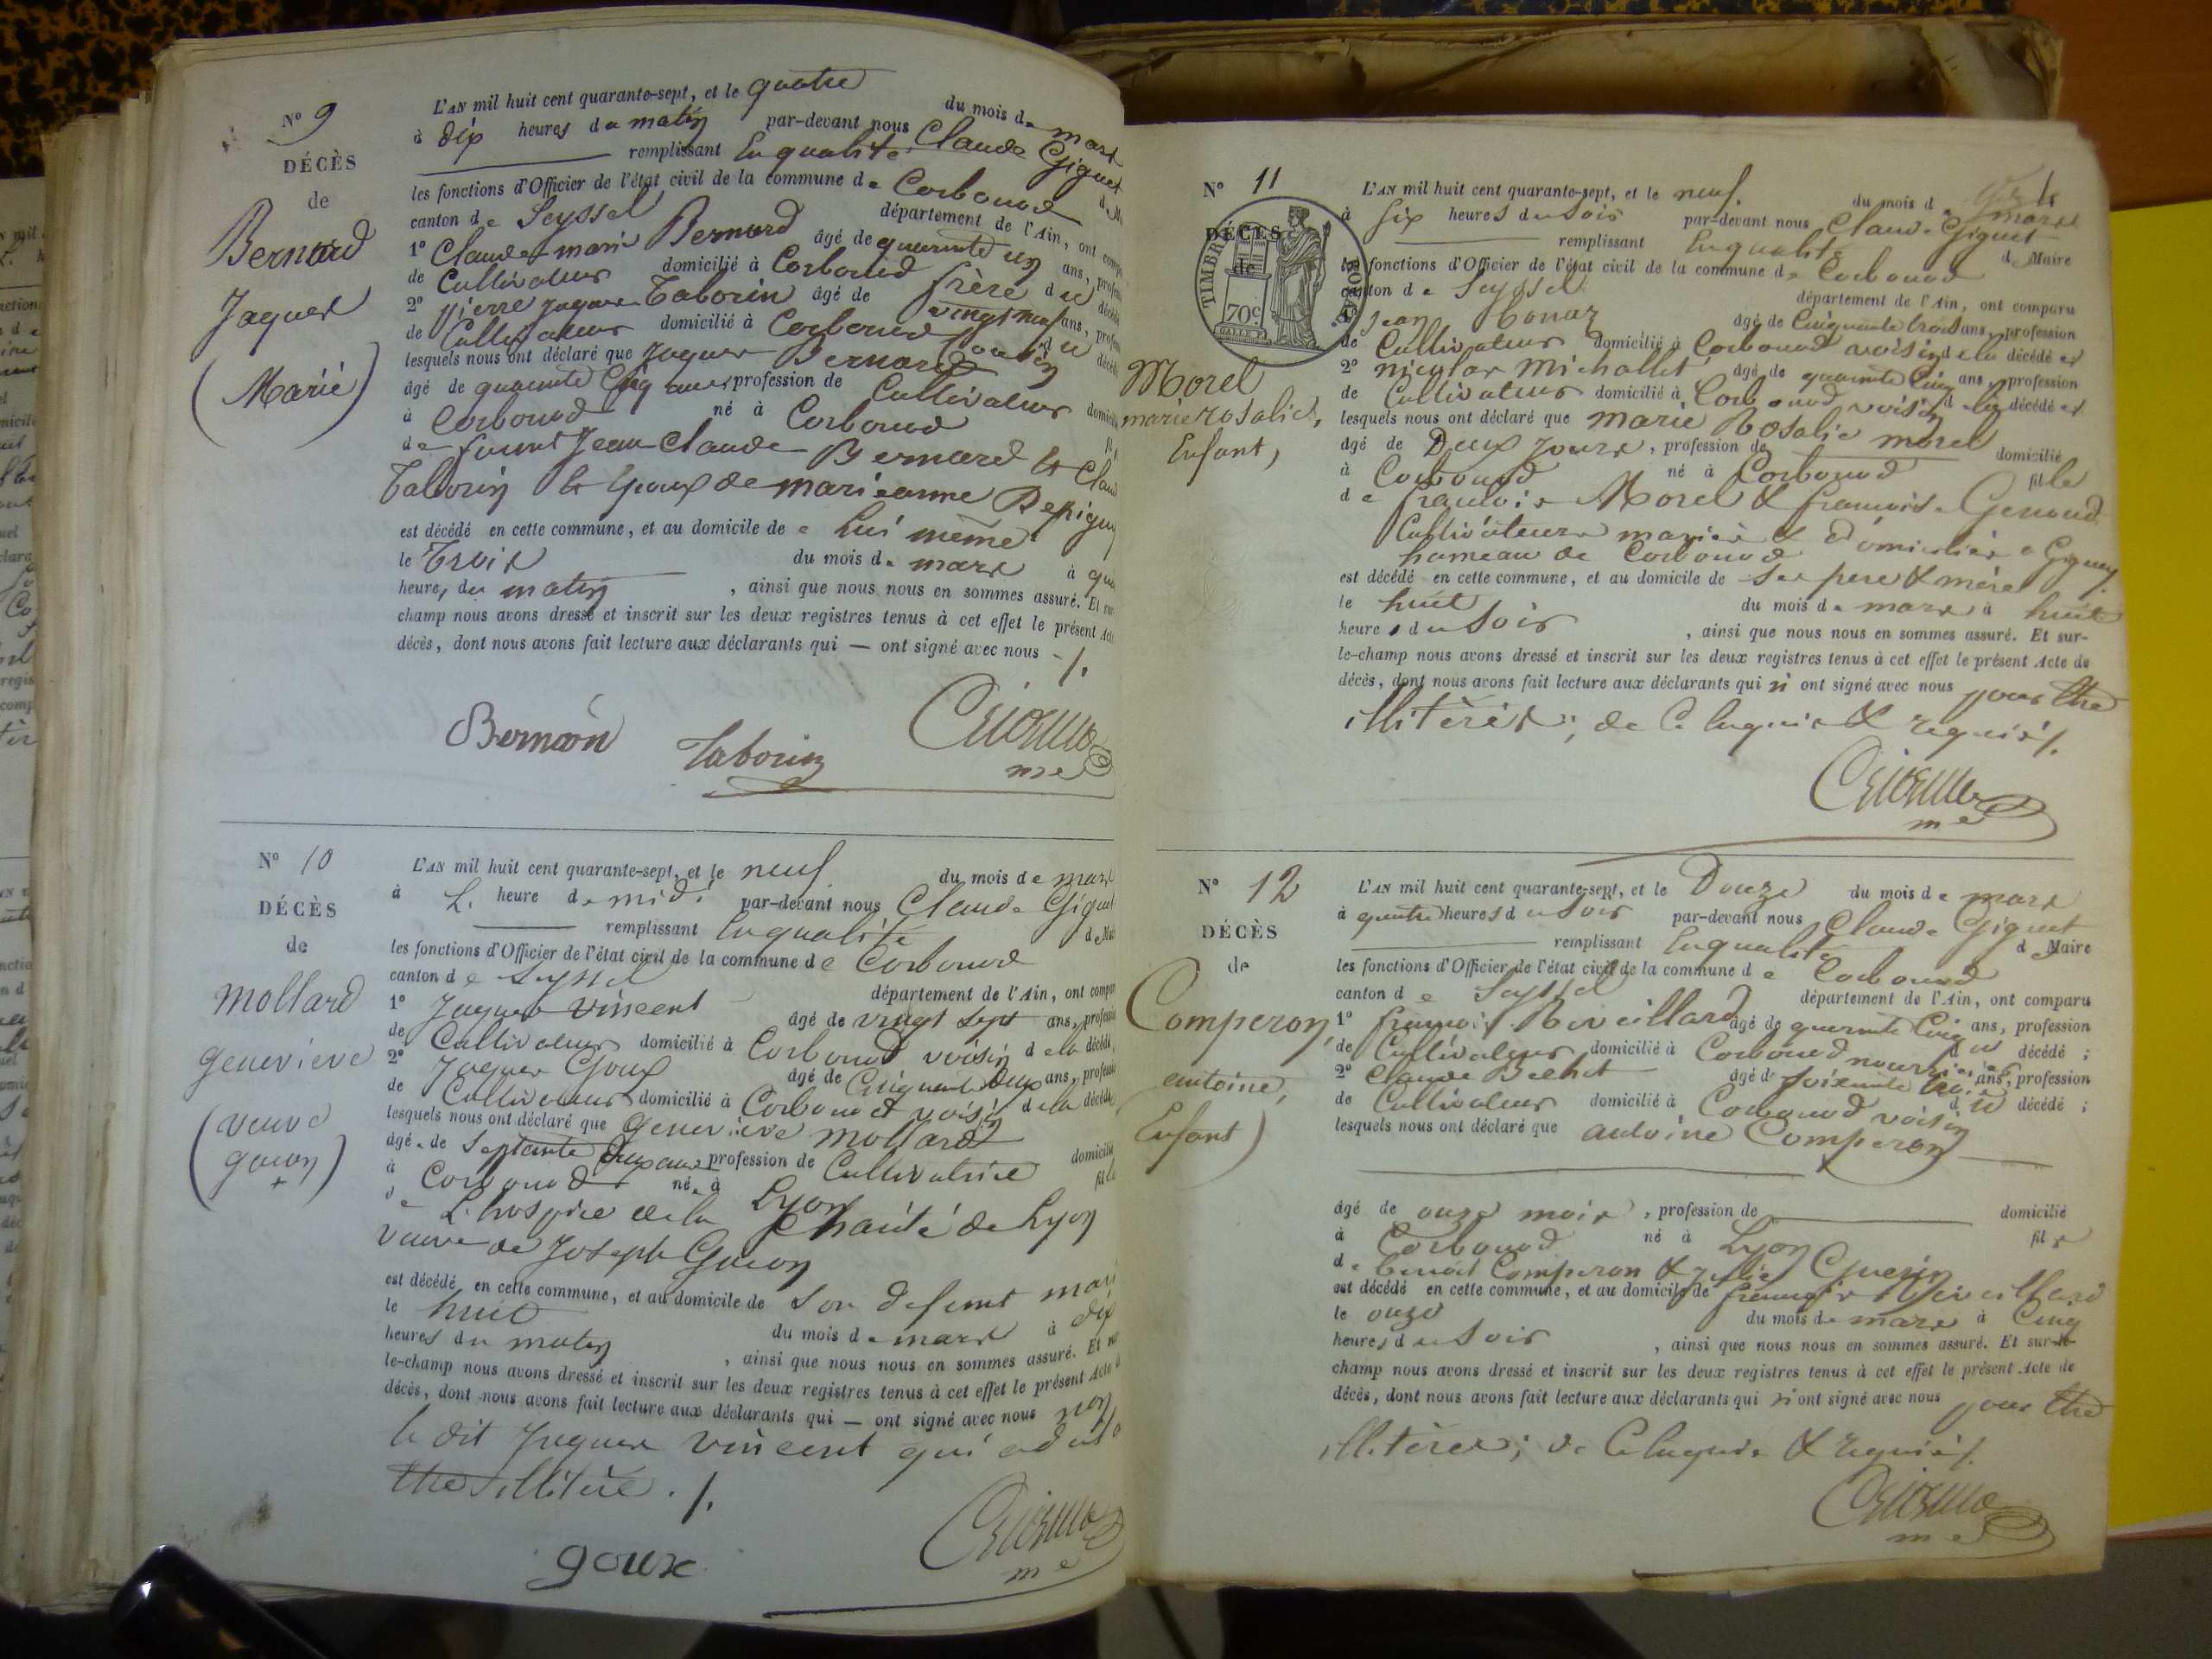 N° 9
DÉCÈS
de
Bernard
Jaques
(Marié)
L'AN mil huit cent quarante-sept, et le quatre du mois de mars
à dix heures du matin par-devant nous Claude Giguet
remplissant en qualité
les fonctions d'Officier de l'état civil de la commune de Corbonod
canton de Seyssel département de l'Ain, ont
1° Claude marie Bernard âgé de quarante un ans,
de Cultivateur domicilié à Corbonod frère du
2° pierre jaques Taborin âgé de vingt neuf ans,
de Cultivateur domicilié à Corbonod cousin du
lesquels nous ont déclaré que Jaques Bernard
âgé de quarante cinq ans profession de Cultivateur
à Corbonod né à Corbonod
de feu Jean Claude Bernard et
Taborin et Epoux de marieanne
est décédé en cette commune, et au domicile de lui même
le Trois du mois de mars à
heures du matin, ainsi que nous nous en sommes assuré. Et
champ nous avons dressé et inscrit sur les deux registres tenus à cet effet le présent
décès, dont nous avons fait lecture aux déclarants qui — ont signé avec nous ./.
Taborin
me
N° 10
DÉCÈS
de
mollard
genevieve
(veuve
goion)
L'AN mil huit cent quarante-sept, et le neuf du mois de mars
à heure de midi par-devant nous Claude Giguet
remplissant en qualité
les fonctions d'Officier de l'état civil de la commune de Corbonod
canton de Seyssel
département de l'Ain, ont
1° Jaques vincent âgé de vingt sept ans,
de Cultivateur domicilié à Corbonod voisin de la
2° Jaques Goux âgé de Cinquante deux ans,
de Cultivateur domicilié à Corbonod voisin de la
lesquels nous ont déclaré que genevieve mollard
âgé de septante deux ans profession de Cultivatrice
à Corbonod née à Lyon
de L'hospice de la Charité de Lyon
veuve de Joseph Goion
est décédé en cette commune, et au domicile de son defunt mari
le huit du mois de mars à dix
heures du matin, ainsi que nous nous en sommes assuré. Et
le-champ nous avons dressé et inscrit sur les deux registres tenus à cet effet le présent Acte
décès, dont nous avons fait lecture aux déclarants qui — ont signé avec nous non
le dit Jaques vincent qui a dit
etre illitère ./.
goux
me
N° 11
DÉCÈS
de
TIMBRE ROYAL
70c
Morel
marie rosalie,
Enfant,
L'AN mil huit cent quarante-sept, et le neuf du mois de mars
à six heures du soir par-devant nous Claude Giguet
remplissant en qualité de Maire
les fonctions d'Officier de l'état civil de la commune de Corbonod
canton de Seyssel
département de l'Ain, ont comparu
1° jean bonaz âgé de Cinquante trois ans, profession
de Cultivateur domicilié à Corbonod voisin de la décédé et
2° nicolas Michallet âgé de quarante cinq ans, profession
de Cultivateur domicilié à Corbonod voisin de la décédé et
lesquels nous ont déclaré que marie Rosalie morel
âgé de Deux jours, profession de domicilié
à Corbonod né à Corbonod fille
de françois Morel & françoise Genoud
Cultivateurs mariés & Domiciliés a Gignez
hameau de Corbonod
est décédé en cette commune, et au domicile de ses pere & mère
le huit du mois de mars à huit
heures du soir, ainsi que nous nous en sommes assuré. Et sur-
le-champ nous avons dressé et inscrit sur les deux registres tenus à cet effet le présent Acte de
décès, dont nous avons fait lecture aux déclarants qui n'ont signé avec nous pour etre
illitèrés; de ce enquis & requis ./.
me
N° 12
DÉCÈS
de
Comperon,
antoine,
Enfant)
L'AN mil huit cent quarante-sept, et le Douze du mois de mars
à quatre heures du soir par-devant nous Claude Giguet
remplissant en qualité de Maire
les fonctions d'Officier de l'état civil de la commune de Corbonod
canton de Seyssel département de l'Ain, ont comparu
1° françois Reveillard âgé de quarante cinq ans, profession
de Cultivateur domicilié à Corbonod nourricier du décédé ;
2° Claude Bechet âgé de soixante trois ans, profession
de Cultivateur domicilié à Corbonod voisin du décédé ;
lesquels nous ont déclaré que antoine Comperon
âgé de onze mois, profession de domicilié
à Corbonod né à Lyon fils
de benoit Comperon & julie Guerin
est décédé en cette commune, et au domicile de françois Reveillard
le onze du mois de mars à Cinq
heures du soir, ainsi que nous nous en sommes assuré. Et sur-le-
champ nous avons dressé et inscrit sur les deux registres tenus à cet effet le présent Acte de
décès, dont nous avons fait lecture aux déclarants qui n'ont signé avec nous pour etre
illitèrés; de ce enquis & requis ./.
me